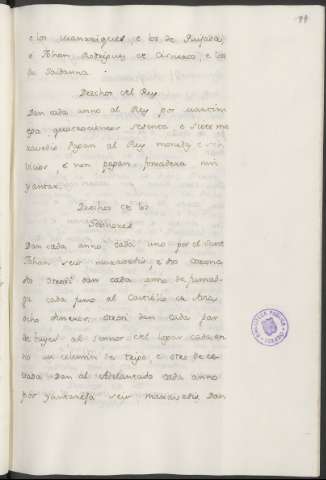 e los manrriques, e los de Quijada
e Johan Rodrigues de Cisneros, e los
de Saldanna.
Derechos del Rey
Dan cada anno al Rey por martini
ega quatrocientos sesenta e siete ma
ravedis Pagan al Rey moneda e ser
vicios, e non pagan fonsadera nin
yantar.
Derechos de los
Sennores
Dan cada anno, cada uno por el Sant
Johan seis maravedis, e do
do Otrosi dan cada anno de
cada uno al Castiello de
ocho dineros, Otrosi dan cada par
de bueyes al sennor del logar cada an
no un celemin de trigo, e otro de ce
vada Dan al Adelantado cada anno
por yantareja seis maravedis Dan